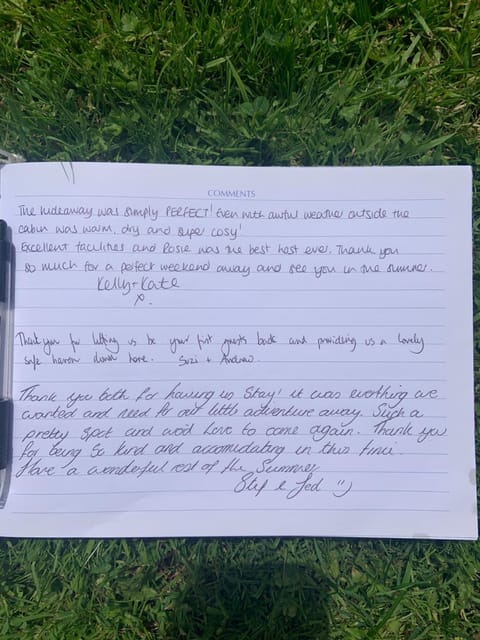 COMMENTS
The hideaway was simply PERFECT! Even with awful weather outside the
cabin was warm, dry and super cosy!
Excellent facilities and Rosie was the best host ever. Thank you
so much for a perfect weekend away and see you in the summer.
Kelly + Kate
x.
Thank you for letting us be your first guests back and providing us a lovely
safe haven down here. Suzi + Andrew.
Thank you both for having us stay! it was everthing we
wanted and need for our little adventure away. Such a
pretty spot and we'd love to come again. Thank you
for being so kind and accomidating in this time.
Have a wonderful rest of the Summer
Stef &